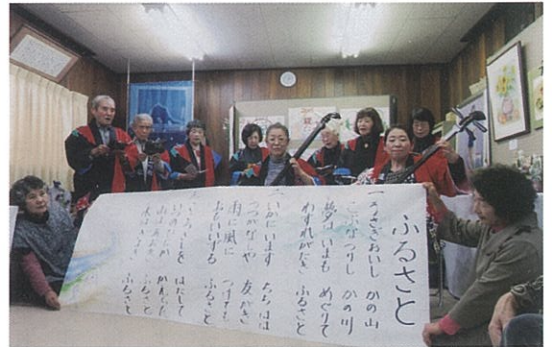 ふるさと
一 うさぎおいし かの山
こぶなつりし かの川
夢は いまも めぐりて
わすれがたき ふるさと
いかにいます ちちはは
つつがなしや 友がき
雨に風に つけても
おもいいずる ふるさと
こころざしを はたして
いつの日にか かえらん
山はあおき ふるさと
水はきよき ふるさと